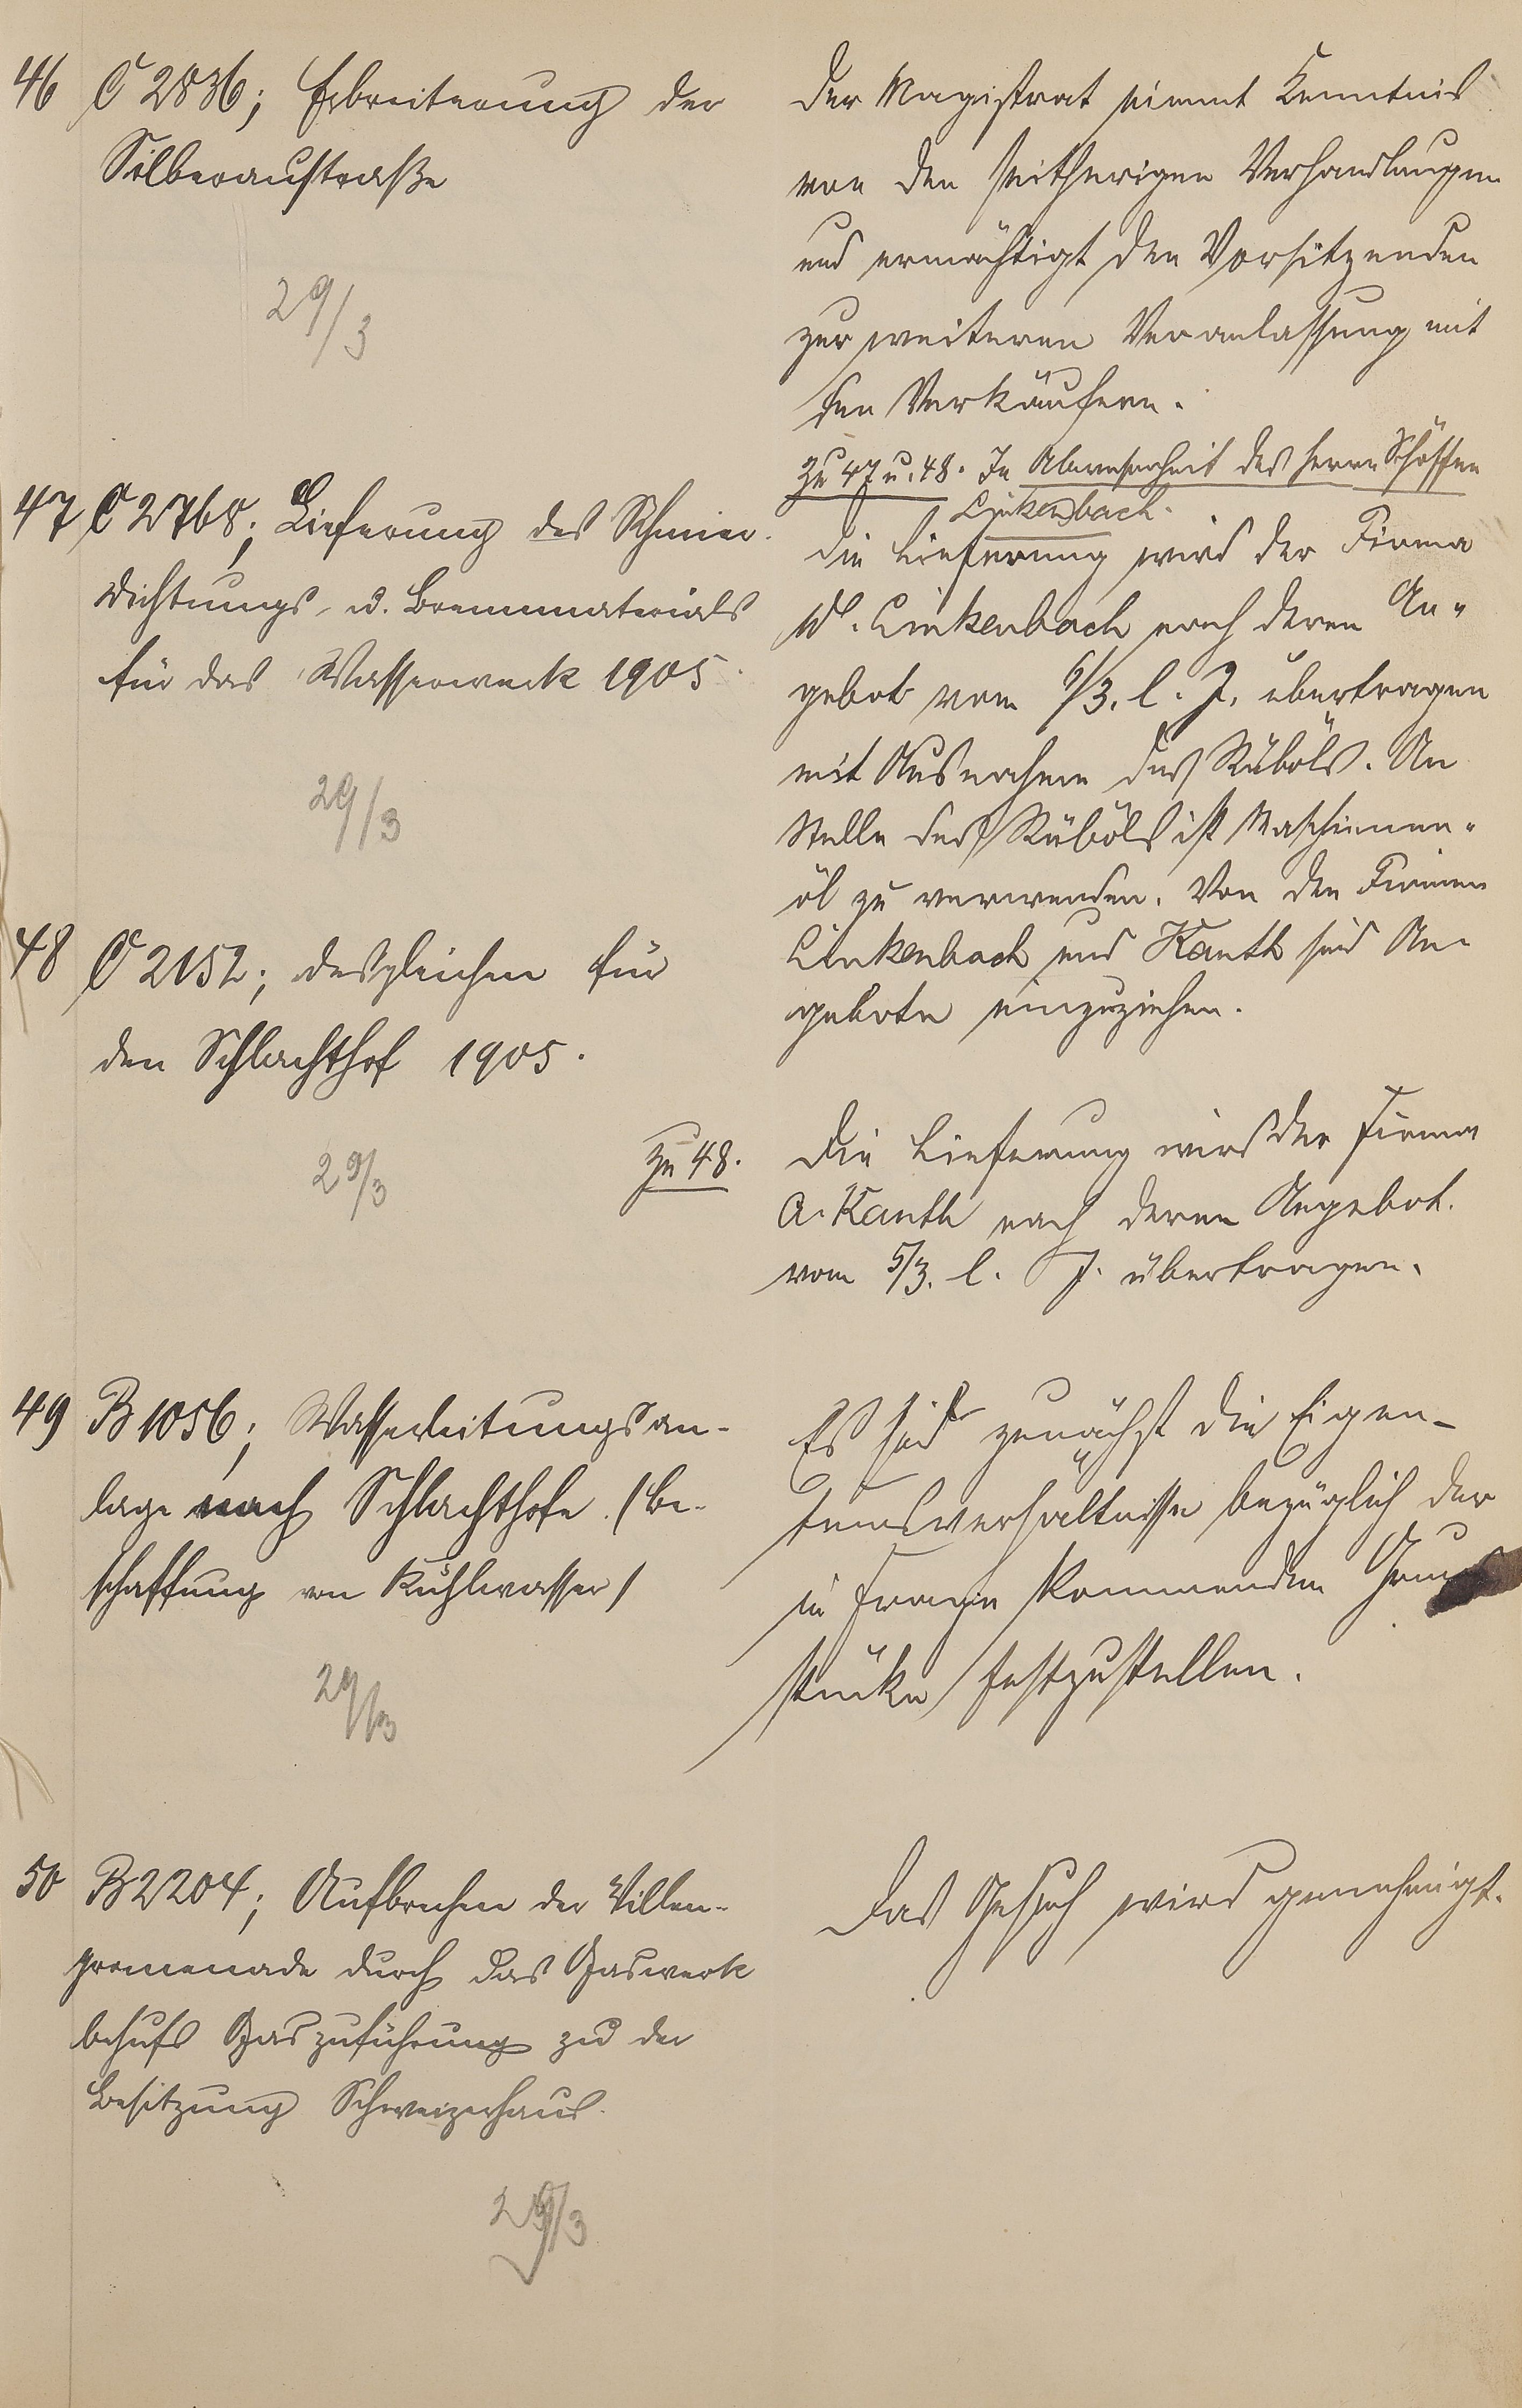 46 C 2836; Erbreiterung der
Silberaustraße
29/3
Der Magistrat nimmt Kenntnis
von den seitherigen Verhandlungen
und ermächtigt den Vorsitzenden
zur weiteren Veranlassung mit
den Verkäufern.
47 C 2768; Lieferung des Schmier-
Dichtungs- u. Brennmaterials
für das Wasserwerk 1905.
29/3
Zu 47 u. 48. In Abwesenheit des Herrn Schöffen
Linkenbach.
Die Lieferung wird der Firma
W. Linkenbach nach deren An-
gebot vom 6/3. l. J. übertragen
mit Ausnahme des Rüböls. An
Stelle des Rüböls ist Maschinen-
öl zu verwenden. Von den Firmen
Linkenbach und Kanth sind An-
gebote einzuziehen.
48 C 2152; desgleichen für
den Schlachthof 1905.
29/3
Zu 48. Die Lieferung wird der Firma
A. Kanth nach deren Angebot.
vom 5/3. l. J. übertragen.
49 B 1056; Wasserleitungsan-
lage nach Schlachthofe. (Be-
schaffung von Kühlwasser)
29/3
Es sind zunächst die Eigen-
tumsverhältnisse bezüglich der
in Frage kommenden Grund
stücke festzustellen.
50 B 2204; Aufbrechen der Villen-
promenade durch das Gaswerk
behufs Gaszuführung zu der
Besitzung Schweizerhaus.
29/3
Das Gesuch wird genehmigt.